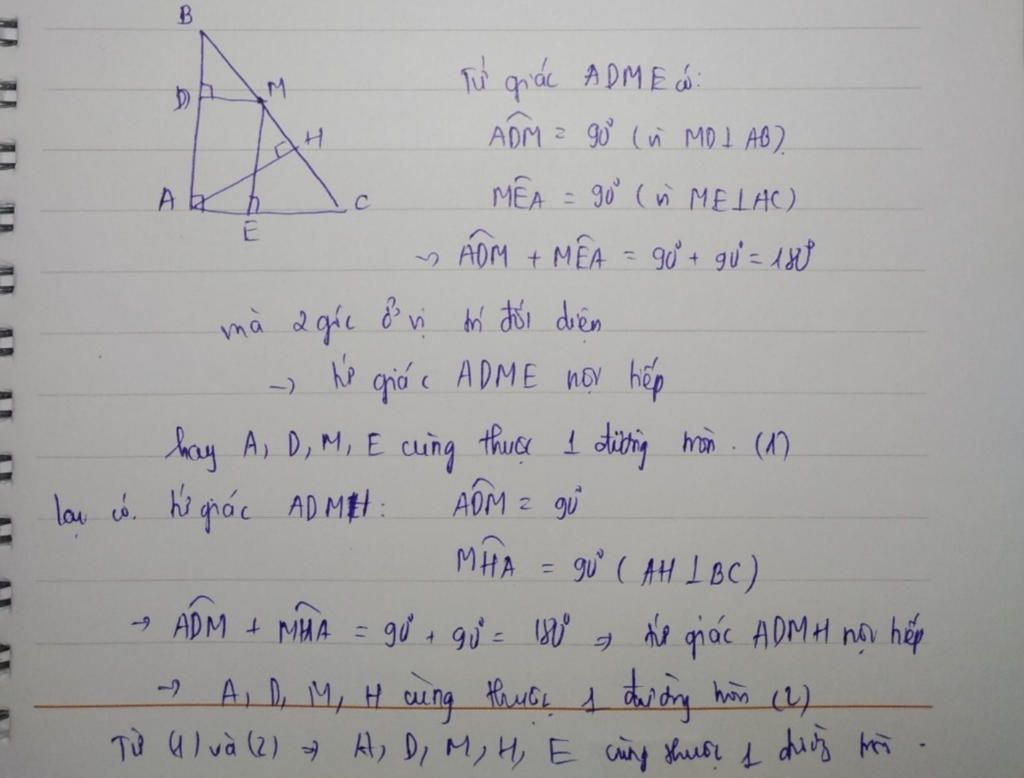 B
D
M
H
A
E
C
Tứ giác ADME có:
ADM̂ = 90° (vì MD⊥AB).
MÊA = 90° (vì ME⊥AC)
→ ADM̂ + MÊA = 90° + 90° = 180°
mà 2 góc ở vị trí đối diện
→ tứ giác ADME nội tiếp
hay A, D, M, E cùng thuộc 1 đường tròn. (1)
lại có. tứ giác ADMH: ADM̂ = 90°
MHÂ = 90° (AH⊥BC)
→ ADM̂ + MHÂ = 90° + 90° = 180° ⇒ tứ giác ADMH nội tiếp
→ A, D, M, H cùng thuộc 1 đường tròn (2)
Từ (1) và (2) ⇒ A, D, M, H, E cùng thuộc 1 đường tròn.